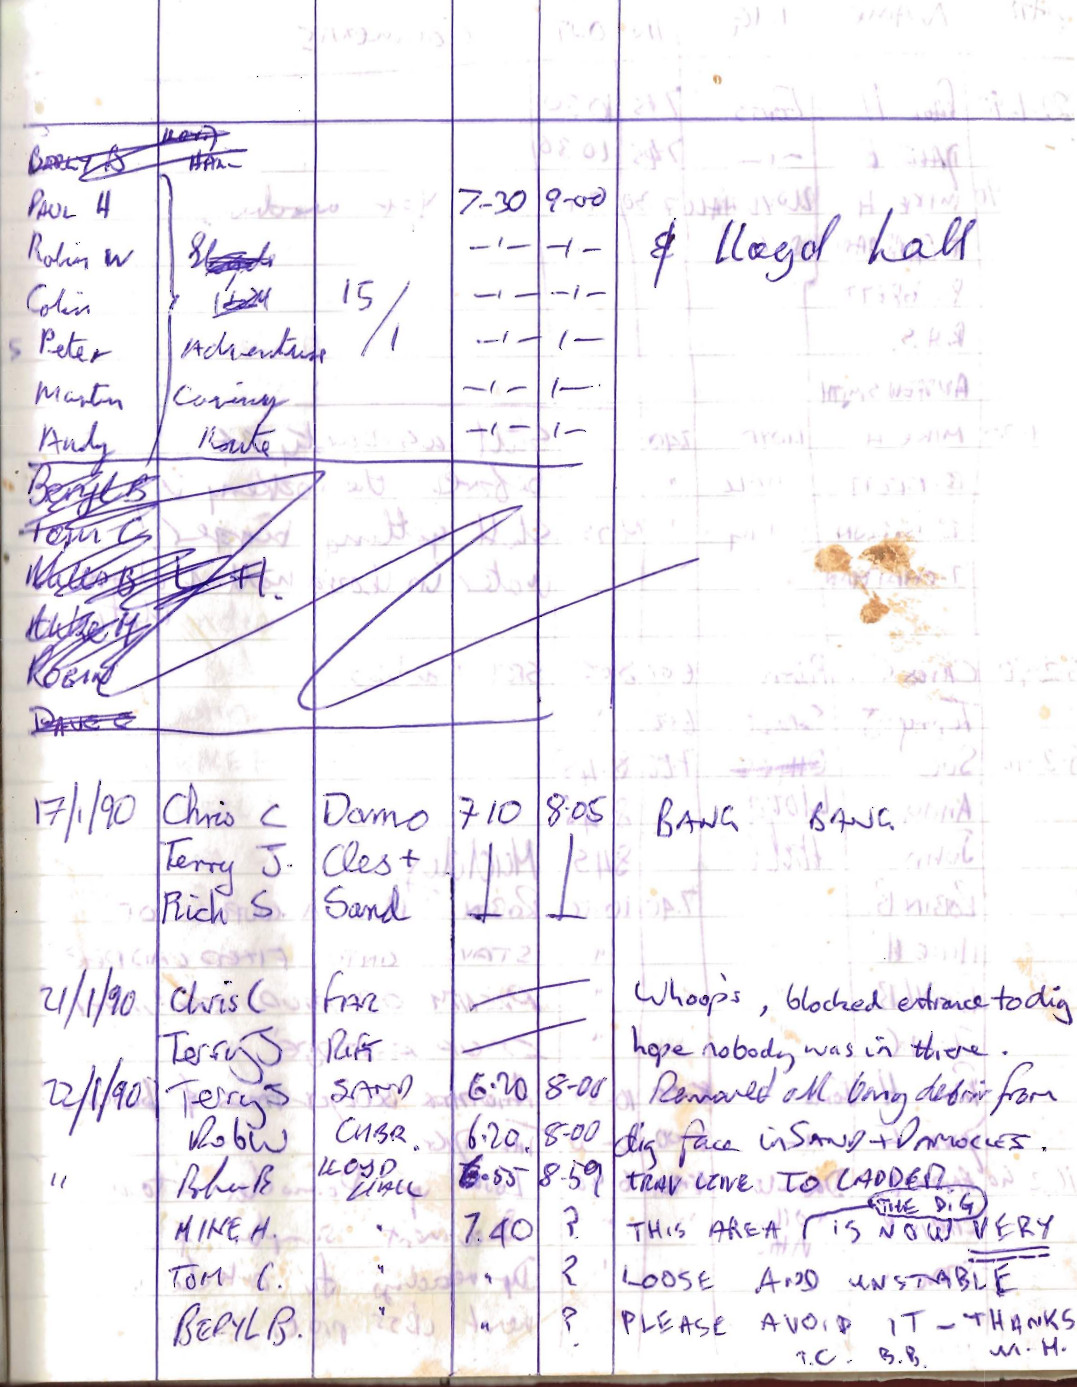 PAUL H 7-30 9-00
Robin W -"- -"- & Lloyd hall
Colin 15/1 -"- -"-
Peter Adventure -"- -"-
Martin Caving -"- -"-
Andy Route -"- -"-
Beryl B
Tom C
Mike H
ROBIN
DAVE C
17/1/90 Chris C Damo 7 10 8.05 BANG BANG
Terry J. Cles +
Rich S Sand
21/1/90 Chris C FAR Whoops, blocked entrance to dig
Terry J Rift hope nobody was in there.
22/1/90 Terry J SAND 6.20 8-00 Removed all bang debris from
Robin CHBR. 6.20. 8-00 dig face in SAND + DAMOCLES.
" LLOYD HALL 6.55 8.59 TRAV LINE TO LADDER
THE DIG
MIKE H. " 7.40 ? THIS AREA IS NOW VERY
TOM C. " " ? LOOSE AND UNSTABLE
BERYL B. " " ? PLEASE AVOID IT - THANKS
T.C. B.B. M.H.